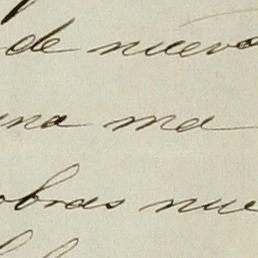 de nuevo
una ma
obras nue